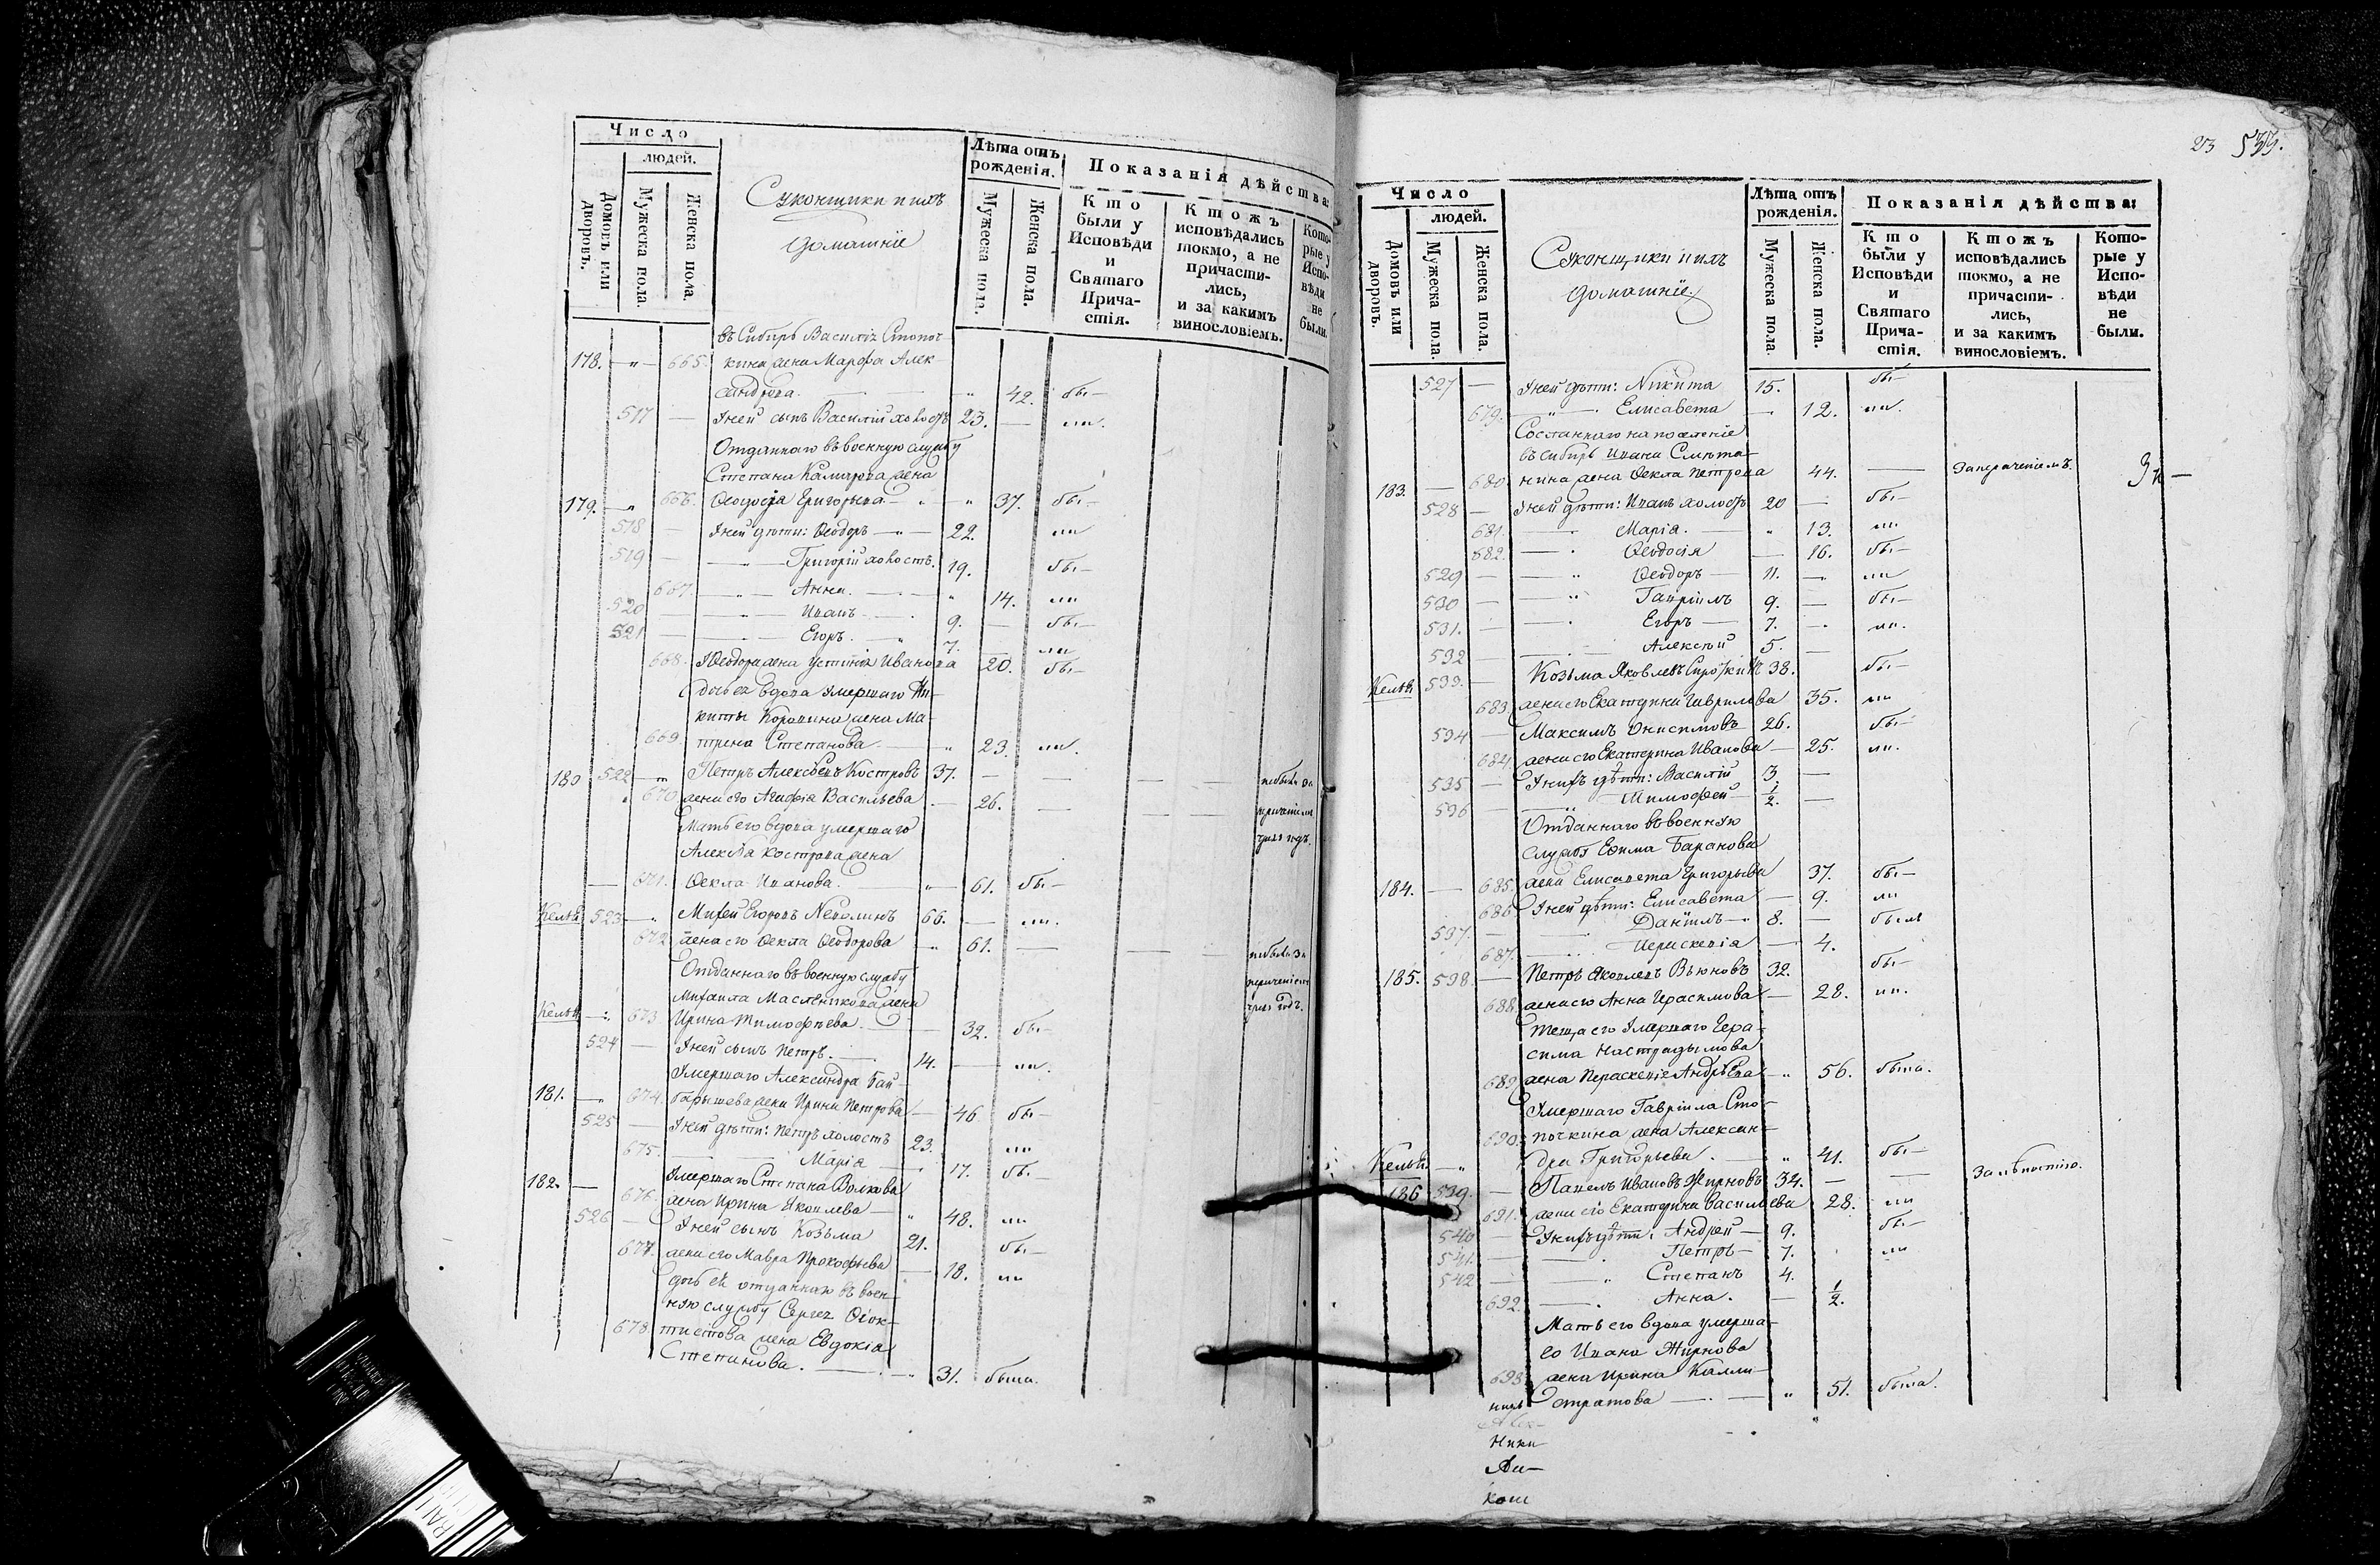 Число
людей.
Домовъ или дворовъ.
Мужеска пола.
Женска пола.
Суконщики и ихъ
домашніе
Лѣта отъ рожденія.
Мужеска пола.
Женска пола.
Показанія дѣйства:
Кто были у Исповѣди и Святаго Причастія.
Ктожъ исповѣдались токмо, а не причастились, и за какимъ винословіемъ.
Которые у Исповѣди не были.
въ Сибирь Василія Стопоч
178. — " — 665. кина жена Марѳа Алек
сандрова. — " 42. бы —
517 — У ней сынъ Василій холостъ 23. — ли.
Отданнаго въ военную службу
Степана жена
179. — " 666. Ѳеодосія Григорьева — " 37. бы —
518 — У ней дѣти: Ѳеодоръ — " — 22. ли
519 — — " — Григорій холостъ. 19. бы —
667. — " — Анна. — " 14. ли
520 — — " — Иванъ — 9. — бы —
521 — — " — Егоръ. — " 7. — ли
668. У Ѳеодора жена Устинія Иванова 20. бы —
дочь ея вдова умершаго Ни-
киты жена Ма-
669. трена Степанова. — " 23. ли.
180 522 — " Петръ Алексѣевъ Костровъ 37. — — — небыли за
670 жена его Агафія Васильева — 26. — — нерачені
Мать его вдова умершаго
Алексѣя Кострова жена
— 671. Ѳекла Иванова. — " — 61. бы —
Келья 523 — " Егоровъ 66. — ли.
672. жена его Ѳекла Ѳеодорова — 61. — — небыла за
Отданнаго въ военную службу нерачені
Михаила Масленикова жена
Келья — " 673 Ирина Тимоѳеева. — 32. бы —
524 — У ней сынъ Петръ. — 14. — ли.
Умершаго Александра Бай-
181. — " 674. барышева жена Ирина Петрова — 46 бы —
525 — У ней дѣти: Петръ холостъ 23. ли
675. — Марія — 17. бы.
182. — Умершаго Степана Волкова
676. жена Ирина Яковлева — " 48. ли
526 — У ней сынъ Козьма 21. бы —
677. жена его Мавра Прокофьева — 18. ли
дочь ей отданнаго въ воен-
ную службу Сергея Ѳеок-
678 тистова жена Евдокія
Степанова. — " 31. была.
23 533.
Число
людей.
Домовъ или дворовъ.
Мужеска пола.
Женска пола.
Суконщики и ихъ
домашніе.
Лѣта отъ рожденія.
Мужеска пола.
Женска пола.
Показанія дѣйства:
Кто были у Исповѣди и Святаго Причастія.
Ктожъ исповѣдались токмо, а не причастились, и за какимъ винословіемъ.
Которые у Исповѣди не были.
527 — У ней дѣти: Никита 15. бы —
679. — " — Елисавета — 12. ли.
Сосланнаго на поселеніе
въ Сибирь Ивана Смѣта-
183. — 680 нина жена Ѳекла Петрова 44. — За нераченіемъ.
528 — У ней дѣти: Иванъ холостъ 20 — бы —
681. — Марія. — " 13. ли
682. — Ѳеодосія — 16. бы —
529 — — " Ѳеодоръ — 11. — ли
530 — — " Гавріилъ 9. — бы —
531. — — Егоръ — 7. — ли.
532 — — Алексѣй 5. —
Келья 533. — Козьма Яковлевъ Сироткинъ 38. бы —
683. жена его Екатерина Гаврилова 35. ли
534 — Максимъ Онисимовъ 26. бы —
684. жена его Екатерина Иванова — 25. ли.
535 — У нихъ дѣти: Василій 3. —
536 — " — Тимоѳей — 1/2. —
Отданнаго въ военную
службу Ефима Баранова
184. — 685. жена Елисавета Григорьева 37. бы —
686 У ней дѣти: Елисавета — 9. ли
537. — — Даніилъ — 8. — былъ
687. — Параскевія — 4.
185. 538 — Петръ Яковлевъ Вьюновъ 32. бы —
688. жена его Анна Герасимова — 28. ли.
теща его Умершаго Гера-
сима
689 жена Параскевіе Андрѣева — " 56. была.
Умершаго Гавріила Сто-
690. почкина жена Алексан-
Келья — " дра Григорьева. — " 41. бы —
186 539. — Павелъ Ивановъ Жирновъ 34. — — За лѣностію.
691. жена его Екатерина Васильева 28. ли
540 — У нихъ дѣти: Андрей — 9. бы —
541. — — Петръ — 7. ли
542 — — " Степанъ 4.
692. — Анна. — 1/2.
Мать его вдова умерша-
го Ивана Жирнова
693. жена Ирина Калли-
стратова — " 51. была.